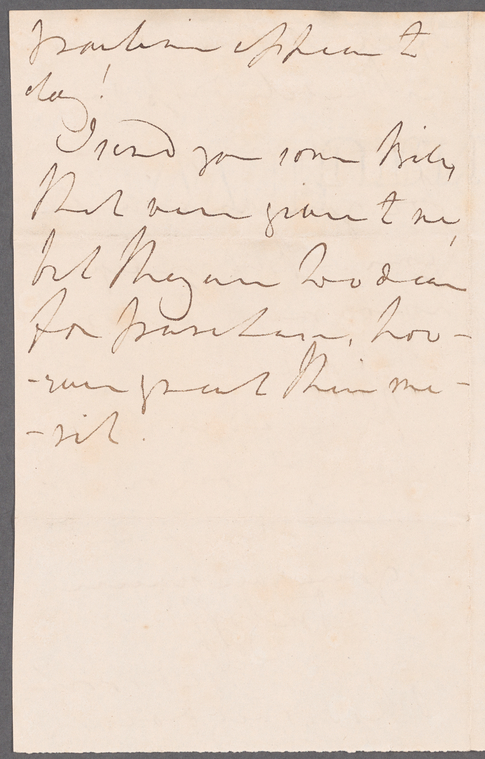 appear to
day!
I send you some Bills,
that were given to me,
but they are too dear
for purchase, how-
-ever great their me-
-rit.